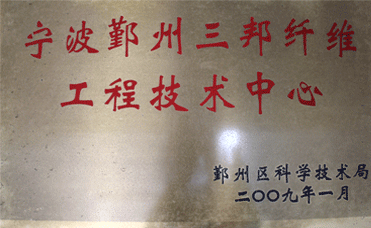 宁波鄞州三邦纤维
工程技术中心
鄞州区科学技术局
二〇〇九年一月